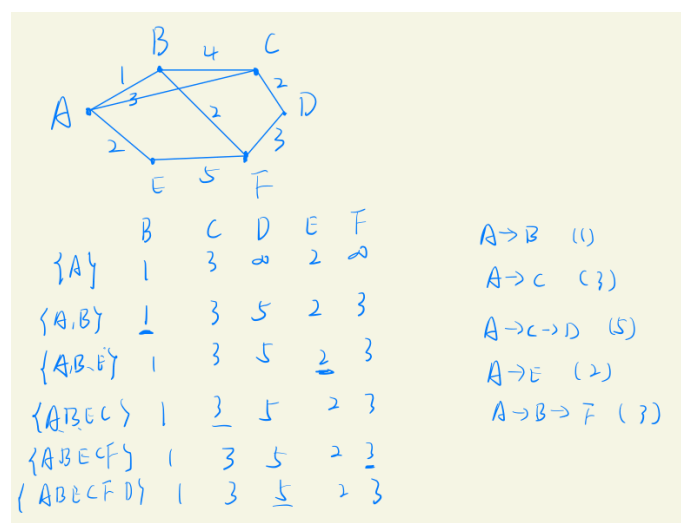 B 4 C
1 3 2 D
A 2 3
2 E 5 F
B C D E F
{A} 1 3 ∞ 2 ∞
{A,B} 1 3 5 2 3
{A,B,E} 1 3 5 2 3
{ABEC} 1 3 5 2 3
{ABECF} 1 3 5 2 3
{ABECFD} 1 3 5 2 3
A→B (1)
A→C (3)
A→C→D (5)
A→E (2)
A→B→F (3)